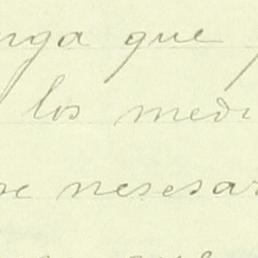 nga que
los medi
se nesesar